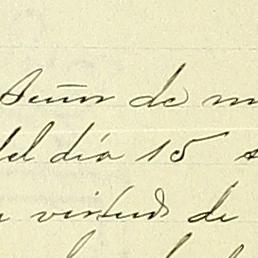 Señor de
del día 15
virtud de